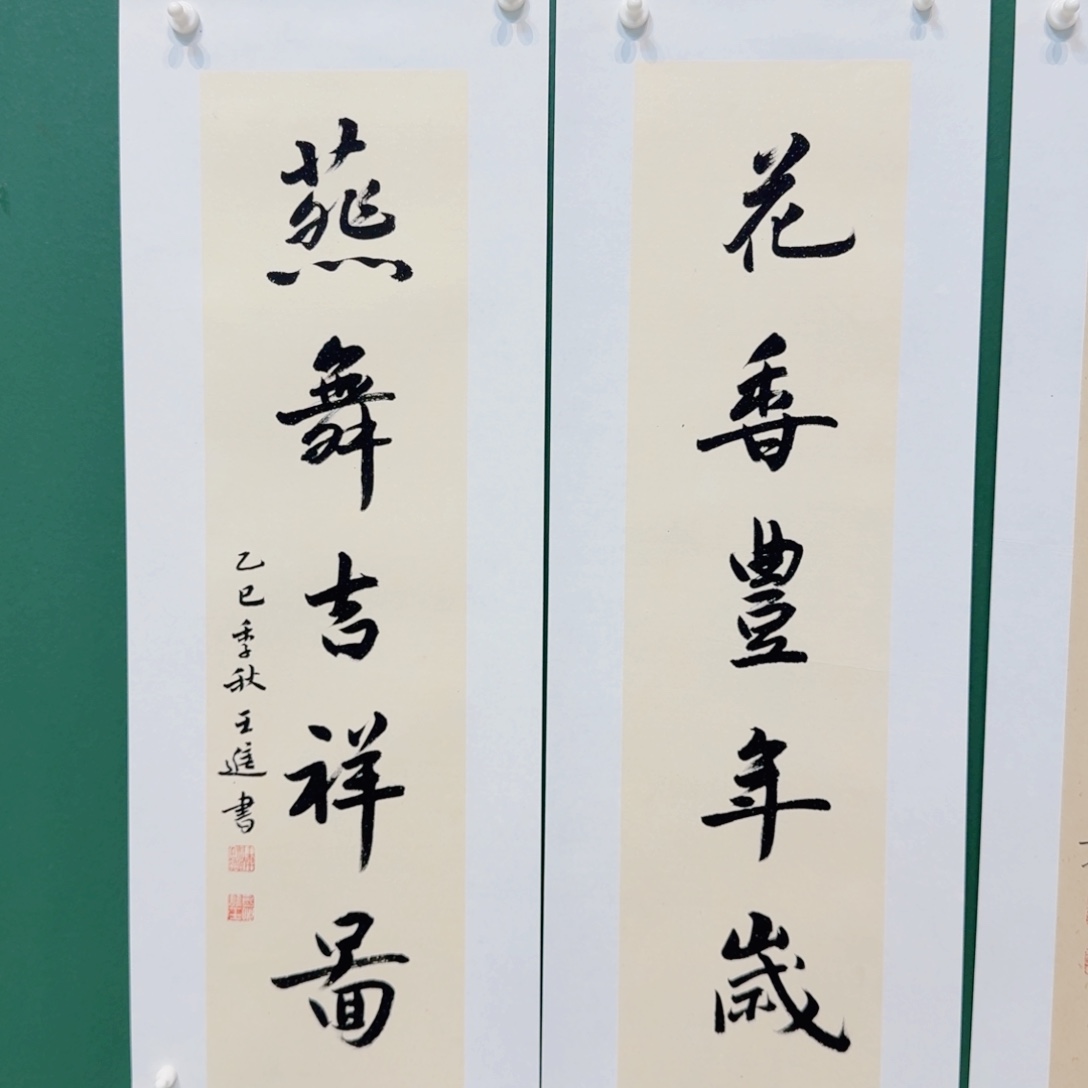 花香豐年歲
燕舞吉祥圖
乙巳季秋王進書